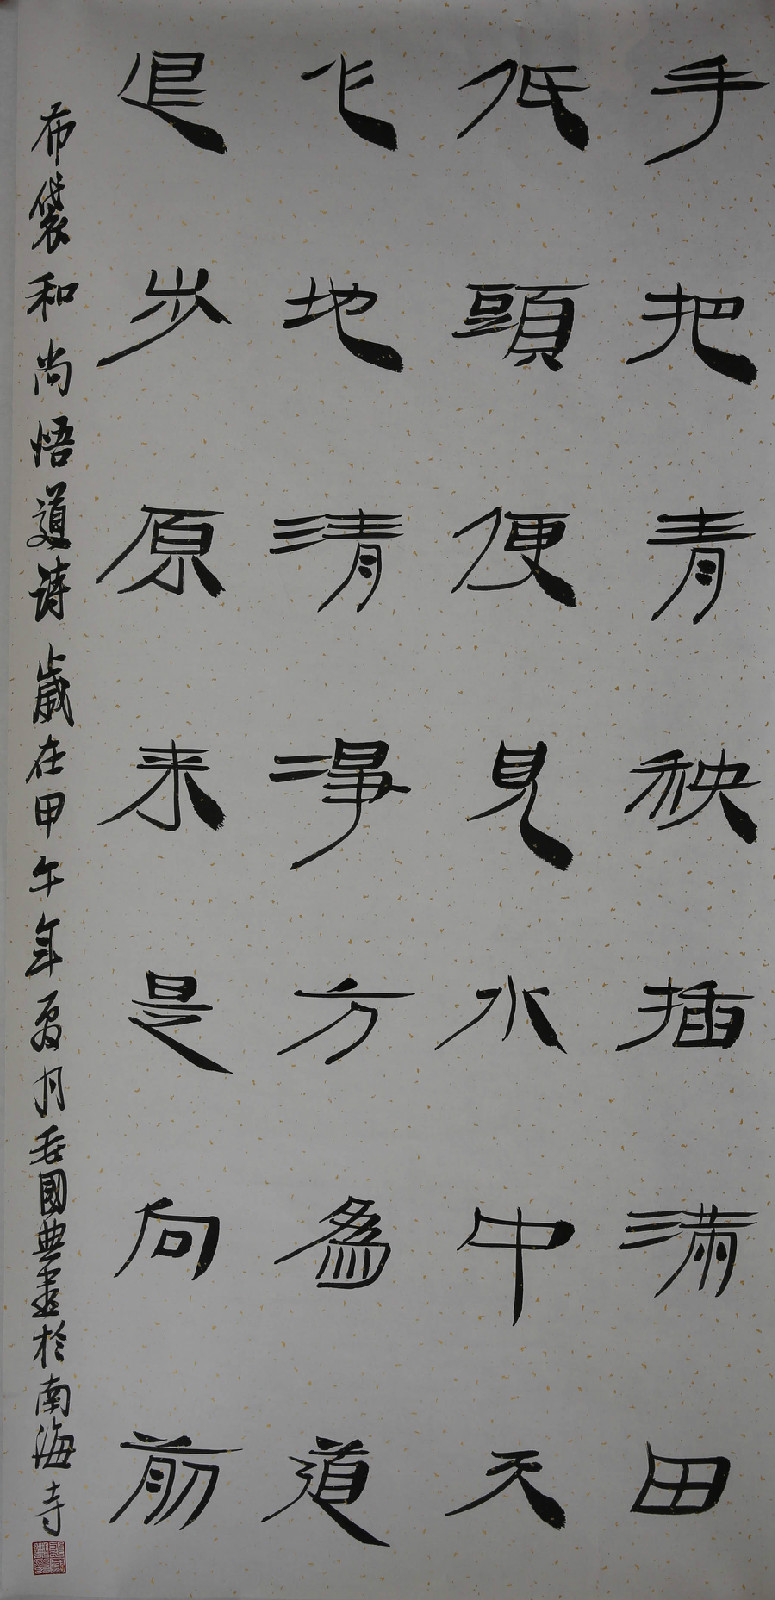 手把青秧插满田
低頭便見水中天
心地清淨方爲道
退步原来是向前
布袋和尚悟道詩歲在甲午年夏月國典書於南海寺